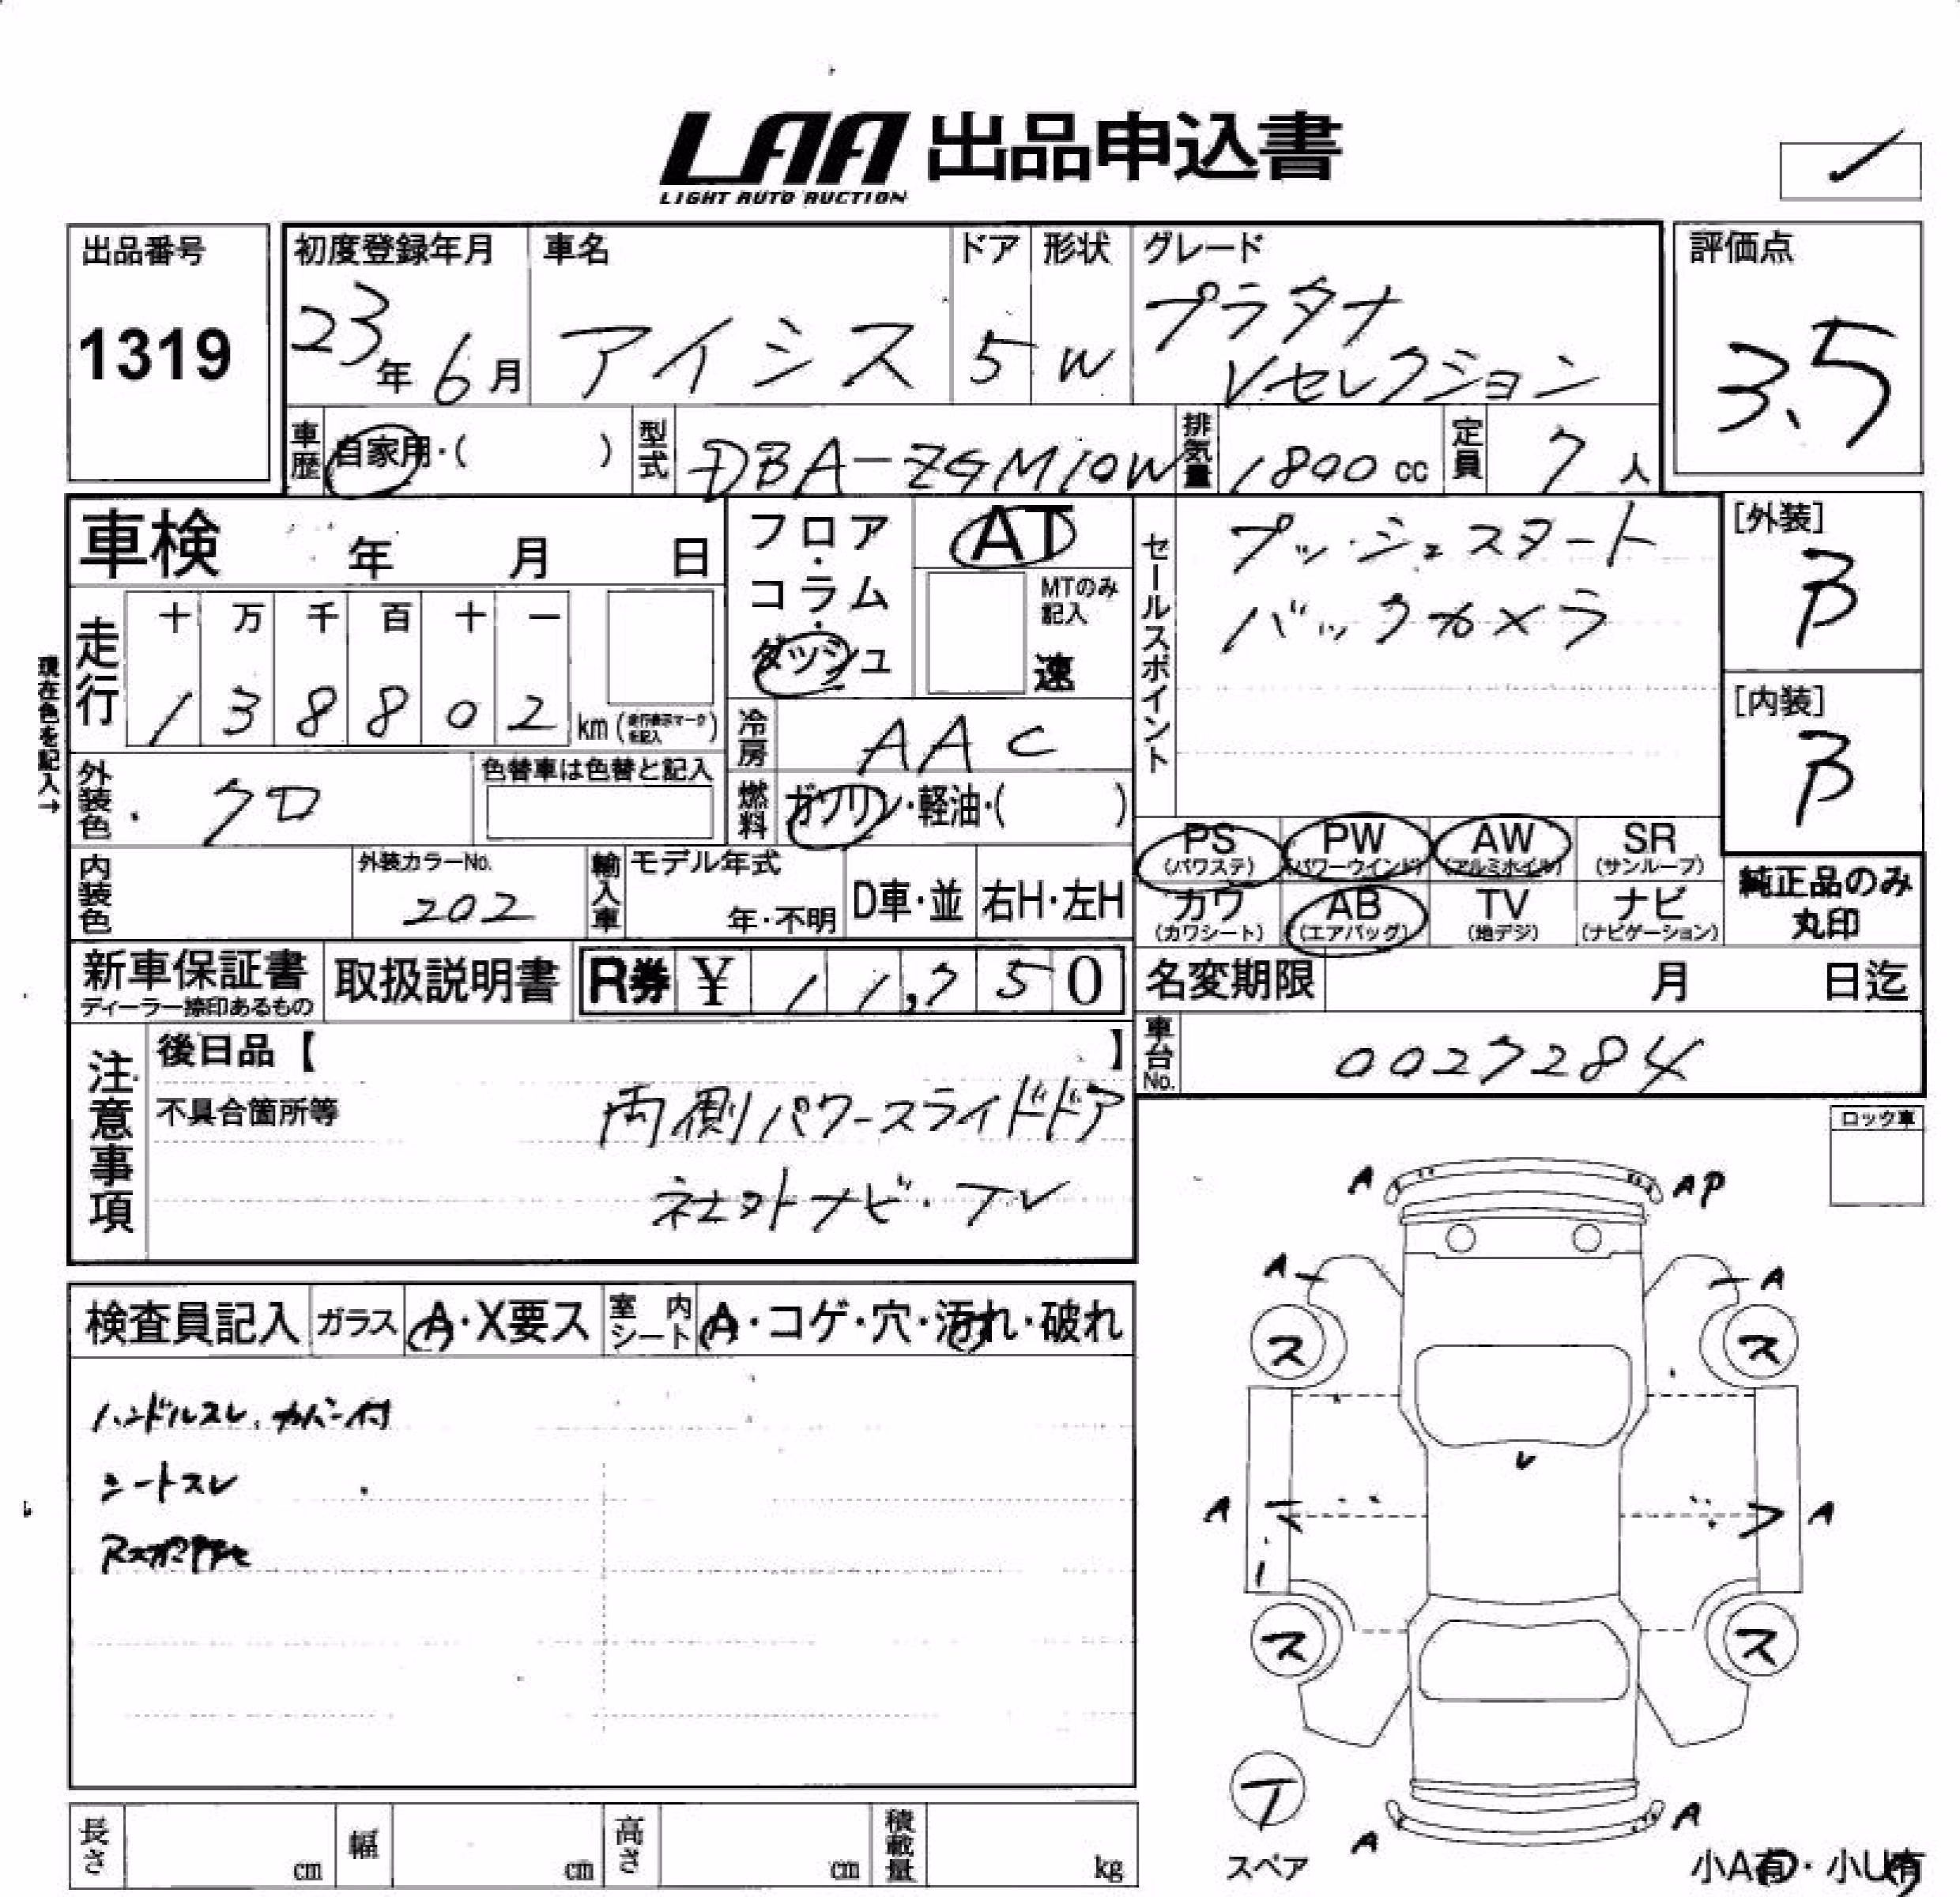 LAA 出品申込書
LIGHT AUTO AUCTION
出品番号
1319
初度登録年月
23年6月
車名
アイシス
ドア
5
形状
W
グレード
プラタナ
Vセレクション
評価点
3.5
車歴
自家用・( )
型式
DBA-ZGM10W
排気量
1800 cc
定員
7人
車検 年 月 日
フロア・コラム・ダッシュ
AT
MTのみ記入
速
セールスポイント
プッシュスタート
バックカメラ
[外装]
B
[内装]
B
現在色を記入→
走行
十 万 千 百 十 一
1 3 8 8 0 2 km (走行表示マークを記入)
冷房
AAC
外装色
クロ
色替車は色替と記入
燃料
ガソリン・軽油・( )
PS (パワステ)
PW (パワーウインド)
AW (アルミホイル)
SR (サンルーフ)
カワ (カワシート)
AB (エアバッグ)
TV (地デジ)
ナビ (ナビゲーション)
純正品のみ
丸印
内装色
外装カラーNo.
202
輸入車
モデル年式
年・不明
D車・並
右H・左H
新車保証書
ディーラー捺印あるもの
取扱説明書
R券 ¥ 11,750
名変期限 月 日迄
車台No.
0027284
注意事項
後日品【 】
不具合箇所等
両側パワースライドドア
社外ナビ・TV
ロック車
検査員記入
ガラス
A・X要ス
室内シート
A・コゲ・穴・汚れ・破れ
ハンドルスレ、カバー付
シートスレ
A
AP
A
A
ス
ス
A
A
ス
ス
T
スペア
A
A
小A有・小U有
長さ cm
幅 cm
高さ cm
積載量 kg